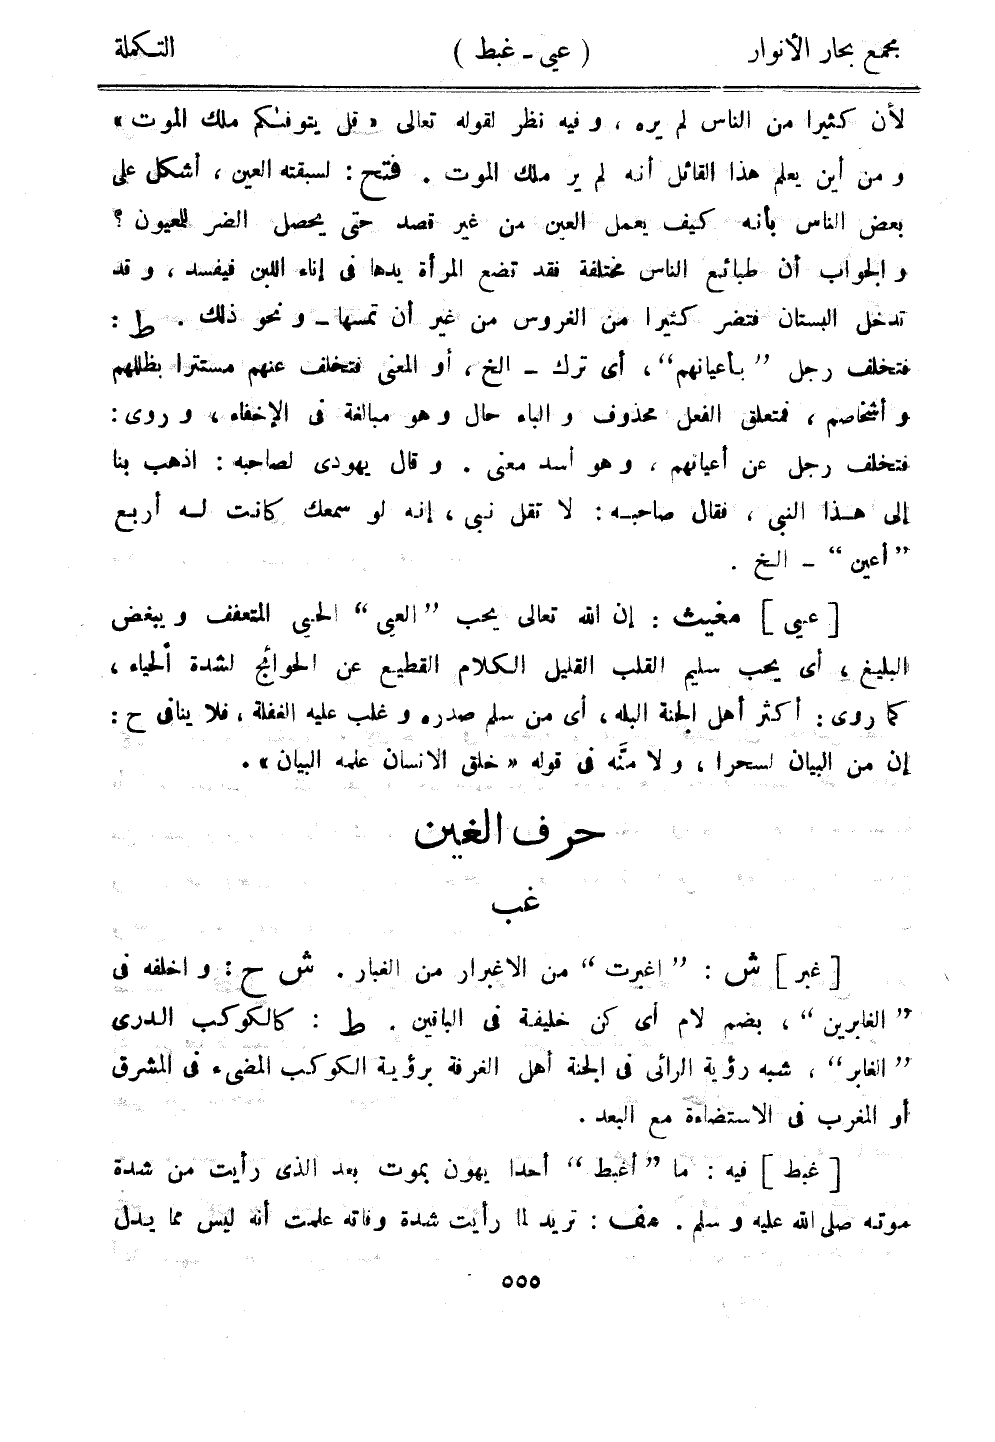 مجمع بحار الأنوار ( عيى - غبط ) التكملة
لأن كثيرا من الناس لم يره ، و فيه نظر لقوله تعالى « قل يتوفٰىكم ملك الموت »
و من أين يعلم هذا القائل أنه لم ير ملك الموت . فتح : لسبقته العين ، أشكل على
بعض الناس بأنه كيف يعمل العين من غير قصد حتى يحصل الضر للعيون ؟
و الجواب أن طبائع الناس مختلفة فقد تضع المرأة يدها فى إناء اللبن فيفسد ، و قد
تدخل البستان فتضر كثيرا من الغروس من غير أن تمسها - و نحو ذلك . ط :
فتخلف رجل ”بأعيانهم“ ، أى ترك - الخ ، أو المعنى فتخلف عنهم مستترا بظللهم
و أشخاصم ، فمتعلق الفعل محذوف و الباء حال و هو مبالغة فى الإخفاء ، و روى :
فتخلف رجل عن أعيانهم ، و هو أسد معنى . و قال يهودى لصاحبه : اذهب بنا
إلى هذا النبى ، فقال صاحبه : لا تقل نبى ، إنه لو سمعك كانت له أربع
”أعين“ - الخ .
[ عيى ] مغيث : إن الله تعالى يحب ”العيى“ الحيى المتعفف و يبغض
البليغ ، أى يحب سليم القلب القليل الكلام القطيع عن الحوائج لشدة ألحياء ،
كما روى : أكثر أهل الجنة البله ، أى من سلم صدره و غلب عليه الغفلة ، فلا ينافى ح :
إن من البيان لسحرا ، و لا منَّه فى قوله « خلق الانسان علمه البيان » .
حرف الغين
غب
[ غبر ] ش : ”اغبرت“ من الاغبرار من الغبار . ش ح : و اخلفه فى
”الغابرين“ ، بضم لام أى كن خليفة فى الباقين . ط : كالكوكب الدرى
”الغابر“ ، شبه رؤية الرائى فى الجنة أهل الغرفة برؤية الكوكب المضىء فى المشرق
أو المغرب فى الاستضاءة مع البعد .
[ غبط ] فيه : ما ”أغبط“ أحدا يهون بموت بعد الذى رأيت من شدة
موته صلى الله عليه و سلم . مف : تريد لما رأيت شدة وفاته علمت أنه ليس مما يدل
٥٥٥